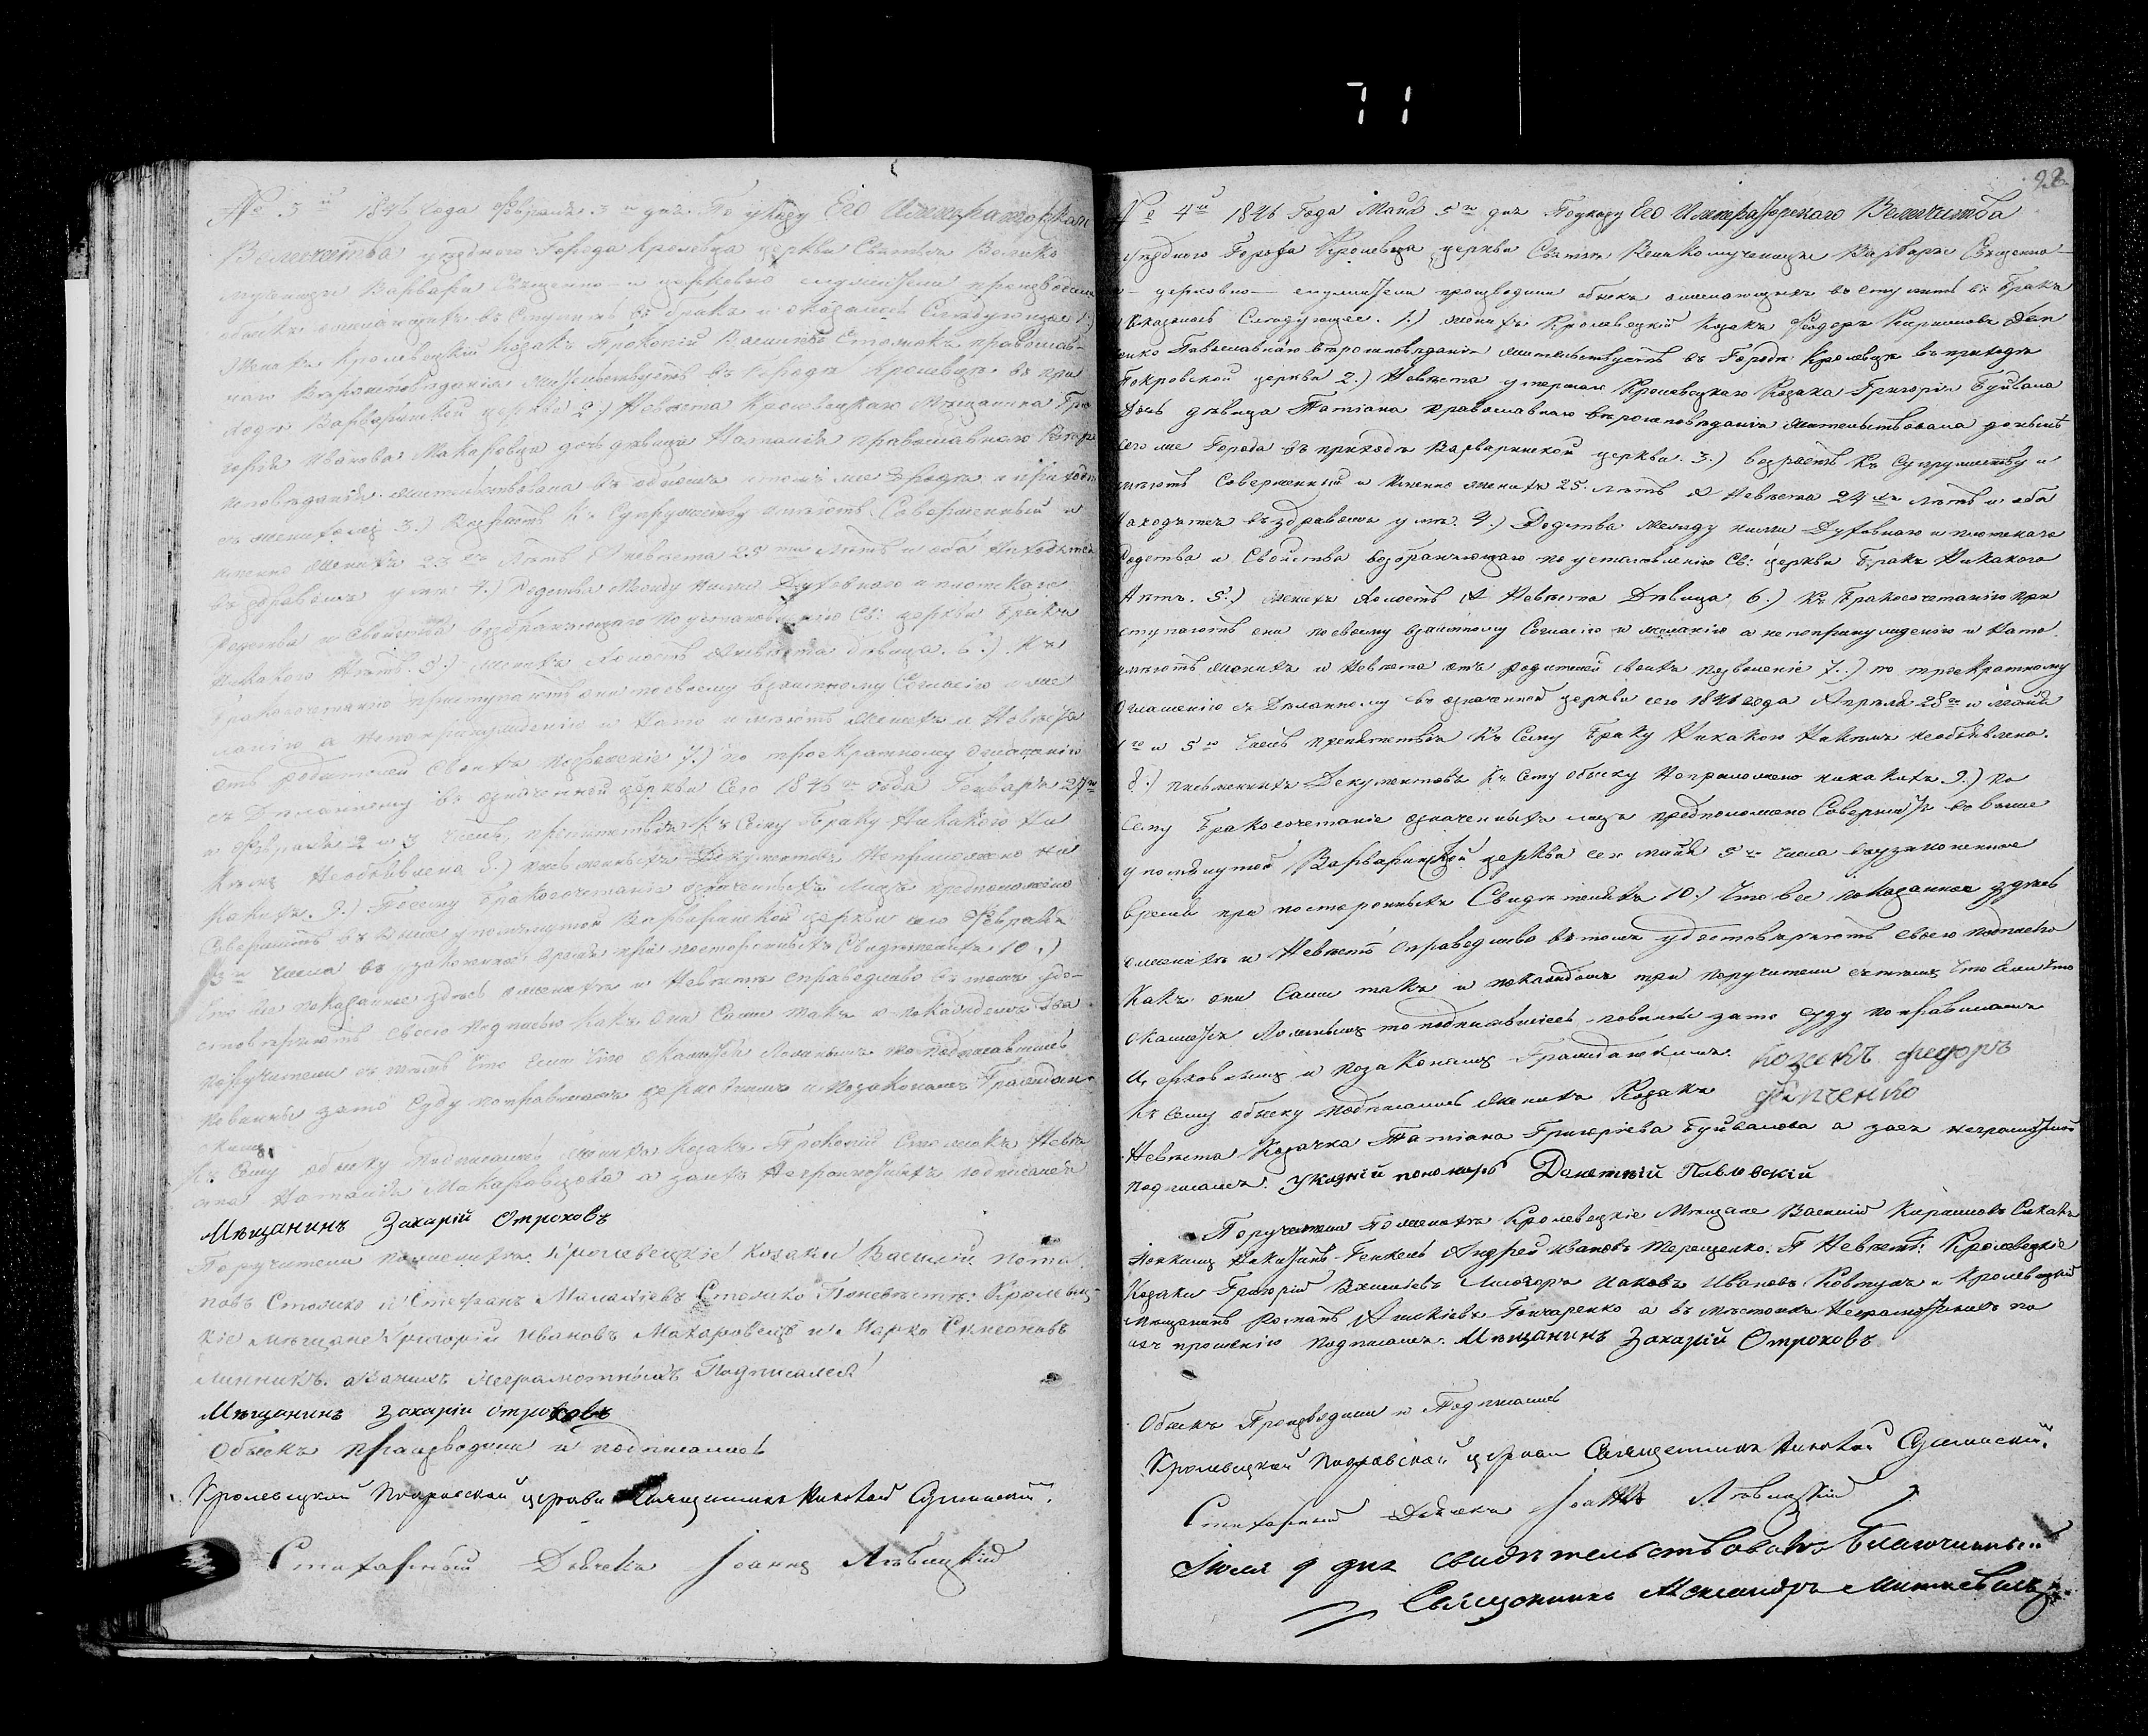 71
№ 3й 1846 года Февраля 3го дня По указу Его Императорскаго
Величества уезднаго Города Кролевца церкви Святыя Велико-
мученицы Варвары Священно- и церковно служители производили
обыскъ желающихъ вступить въ бракъ и оказалось Следующее 1.)
Женихъ Кролевецкій Козакъ Прокопій православ-
наго Вероисповѣданія жительствуетъ въ Городѣ Кролевцѣ въ при
ходѣ Варваринской церкви 2.) Невѣста Кролевецкаго Мѣщанина Гри
горія Иванова Макаровца дочь дѣвица Наталія православнаго Вѣро
исповѣданія жительствовала въ томъ же Городѣ и приходѣ
съ женихомъ 3.) Возрастъ къ Супружеству имѣютъ Совершенный и
именно Женихъ 23хъ Лѣтъ а невѣста 25ти Лѣтъ и оба находятся
въ здравомъ умѣ 4.) Родства Между ними Духовнаго и плотскаго
Родства и Свойства возбраняющаго по установленію Св: церкви бракъ
никакого Нѣтъ. 5.) Женихъ Холостъ а невѣста дѣвица. 6.) Къ
бракосочетанію приступаютъ они по своему взаимному Согласію и же
ланію а не по принужденію и На то имѣютъ женихъ и Невѣста
отъ родителей своихъ позволеніе 7.) по троекратному оглашенію
сдѣланному въ означенной церкви Сего 1846го года Генваря 27го
и Февраля 2 и 3 Числъ, препятствія къ Сему браку Никакого Ни
кѣмъ Необъявлено 8.) письменныхъ Документовъ Неприложено ни
какихъ. 9.) Посему бракосочетаніе означенныхъ Лицъ предположено
Совершить въ выше упомянутой Варваринской церкви сего Февраля
3го Числа въ узаконенное время при постороннихъ Свидѣтеляхъ 10.)
Что все показанное здѣсь о женихѣ и Невѣстѣ справедливо въ томъ удо-
стовѣряютъ своею подписью какъ они Сами такъ и по каждомъ два
поручителя съ тѣмъ что если что окажется Ложнымъ то подписавшіесь
повинны за то Суду по правиламъ церковнымъ и по законамъ Граждан-
скимъ
Къ Сему обыску подписались женихъ Козакъ Прокопій Невѣ
ста Наталія Макаровцова а за нихъ Неграмотныхъ подписался
Мѣщанинъ Захарій Отроховъ
Поручители по женихѣ Кролевецкіе козаки Василій Пота
повъ и Стефанъ По невѣстѣ: Кролевец
кіе мѣщане Григорій Ивановъ Макаровецъ и Марко Симеоновъ
Линникъ. а за нихъ Неграмотныхъ Подписался
Мѣщанинъ Захарій Отроховъ
Обыскъ производили и подписались
Кролевецкой Покровской церкви Священникъ Николай
Стихарный Дьячекъ Іоаннъ
№ 4й 1846 Года Мая 5го дня По указу Его Императорскаго Величества
уезднаго Города Кролевца церкви Святыя Великомученицы Варвары Священно-
и церковно- служители производили обыскъ желающихъ вступить въ бракъ
и оказалось Следующее. 1.) женихъ Кролевецкій Козакъ Феодоръ Ден
енко православнаго вероисповѣданія жительствуетъ въ Городѣ Кролевцѣ въ приходѣ
Покровской церкви 2.) Невѣста умершаго Кролевецкаго Козака Григорія Буйвала
дочь дѣвица Татіана православнаго вѣроисповѣданія жительствовала донынѣ
сего же Города въ приходѣ Варваринской церкви. 3.) возрастъ къ Супружеству и
мѣютъ Совершенный и Именно женихъ 25. лѣтъ а Невѣста 24хъ лѣтъ и оба
находятся въ здравомъ умѣ. 4.) Родства между ними Духовнаго и плотскаго
Родства и Свойства возбраняющаго по установленію Св: церкви бракъ Никакого
Нѣтъ. 5.) женихъ холостъ а Невѣста Дѣвица 6.) Къ Бракосочетанію при
ступаютъ они по своему взаимному Согласію и желанію а не по принужденію и На то
имѣютъ женихъ и Невѣста отъ родителей своихъ позволеніе 7.) по троекратному
оглашенію сдѣланному въ означенной церкви сего 1846 года Апрѣля 28го и мая
1го и 5го Числъ препятствія къ Сему браку Никакого Никѣмъ необъявлено.
8.) письменныхъ Документовъ къ Сему обыску неприложено никакихъ. 9.) По
Сему Бракосочетаніе означенныхъ лицъ предположено Совершить въ выше
упомянутой Варваринской церкви сего мая 5го числа въ узаконенное
время при постороннихъ Свидѣтеляхъ 10.) Что все показанное здѣсь
о женихѣ и Невѣстѣ справедливо въ томъ удостовѣряютъ своею подписью
Какъ они Сами такъ и по каждомъ три поручителя съ тѣмъ что Если что
окажется Ложнымъ то подписавшіесь повинны за то суду по правиламъ
Церковнымъ и по законамъ Гражданскимъ.
Къ Сему обыску подписались женихъ Козакъ козакъ федоръ
Невѣста Козачка Татіана Григоріева Буйвалова а за нея неграмотную
подписался. Указній пономарь Павловскій
Поручители По женихѣ Кролевецкіе Мѣщане Василій
Андрей Ивановъ Терещенко. По Невѣстѣ: Кролевецкіе
Козаки Григорій Василіевъ Яковъ Ивановъ и Кролевецкій
мѣщанинъ Романъ Гончаренко а въ мѣсто ихъ Неграмотныхъ по
ихъ прошенію подписался. Мѣщанинъ Захарій Отроховъ
Обыскъ Производили и Подписались
Кролевецкой Покровской церкви Священникъ Николай
Стихарный Дьячекъ Іоаннъ
Іюля 9 дня свидѣтельствовалъ Благочинный
Священникъ Александръ